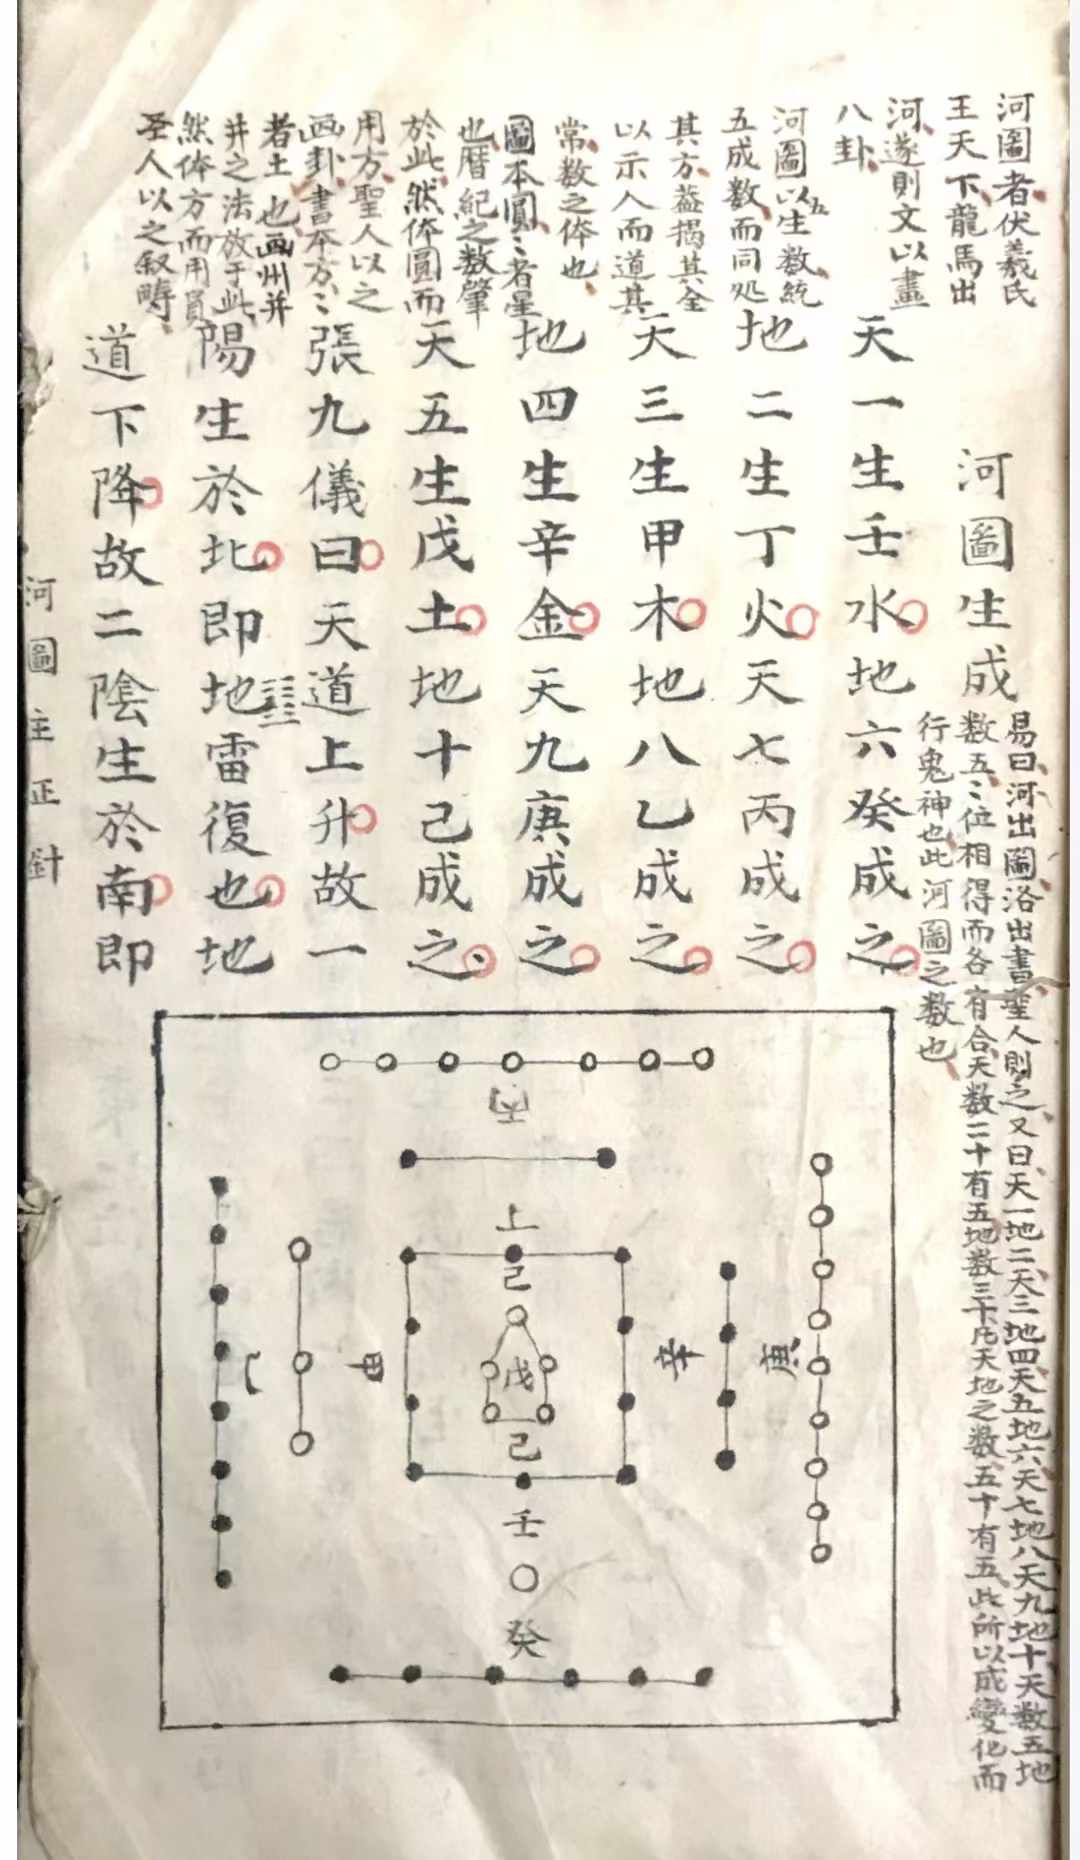 河圖者伏羲氏
王天下龍馬出
河遂則文以畫
八卦
河圖以五生数統
五成数而同処
其方盖揭其全
以示人而道其
常数之体也
圖本圓〻者星
也曆紀之数肇
於此然体圓而
用方聖人以之
画卦書本方〻
者土也画州井
井之法放于此
然体方而用員
圣人以之叙疇
河圖生成
易曰河出圖洛出書聖人則之又曰天一地二天三地四天五地六天七地八天九地十天数五地
数五〻位相得而各有合天数二十有五地数三十凡天地之数五十有五此所以成變化而
行鬼神也此河圖之数也
天一生壬水地六癸成之
地二生丁火天七丙成之
天三生甲木地八乙成之
地四生辛金天九庚成之
天五生戊土地十己成之
張九儀曰天道上升故一
陽生於北即地雷復也地
道下降故二陰生於南即
河圖主正針
上
己
戊
己
壬
癸
乙
甲
辛
庚